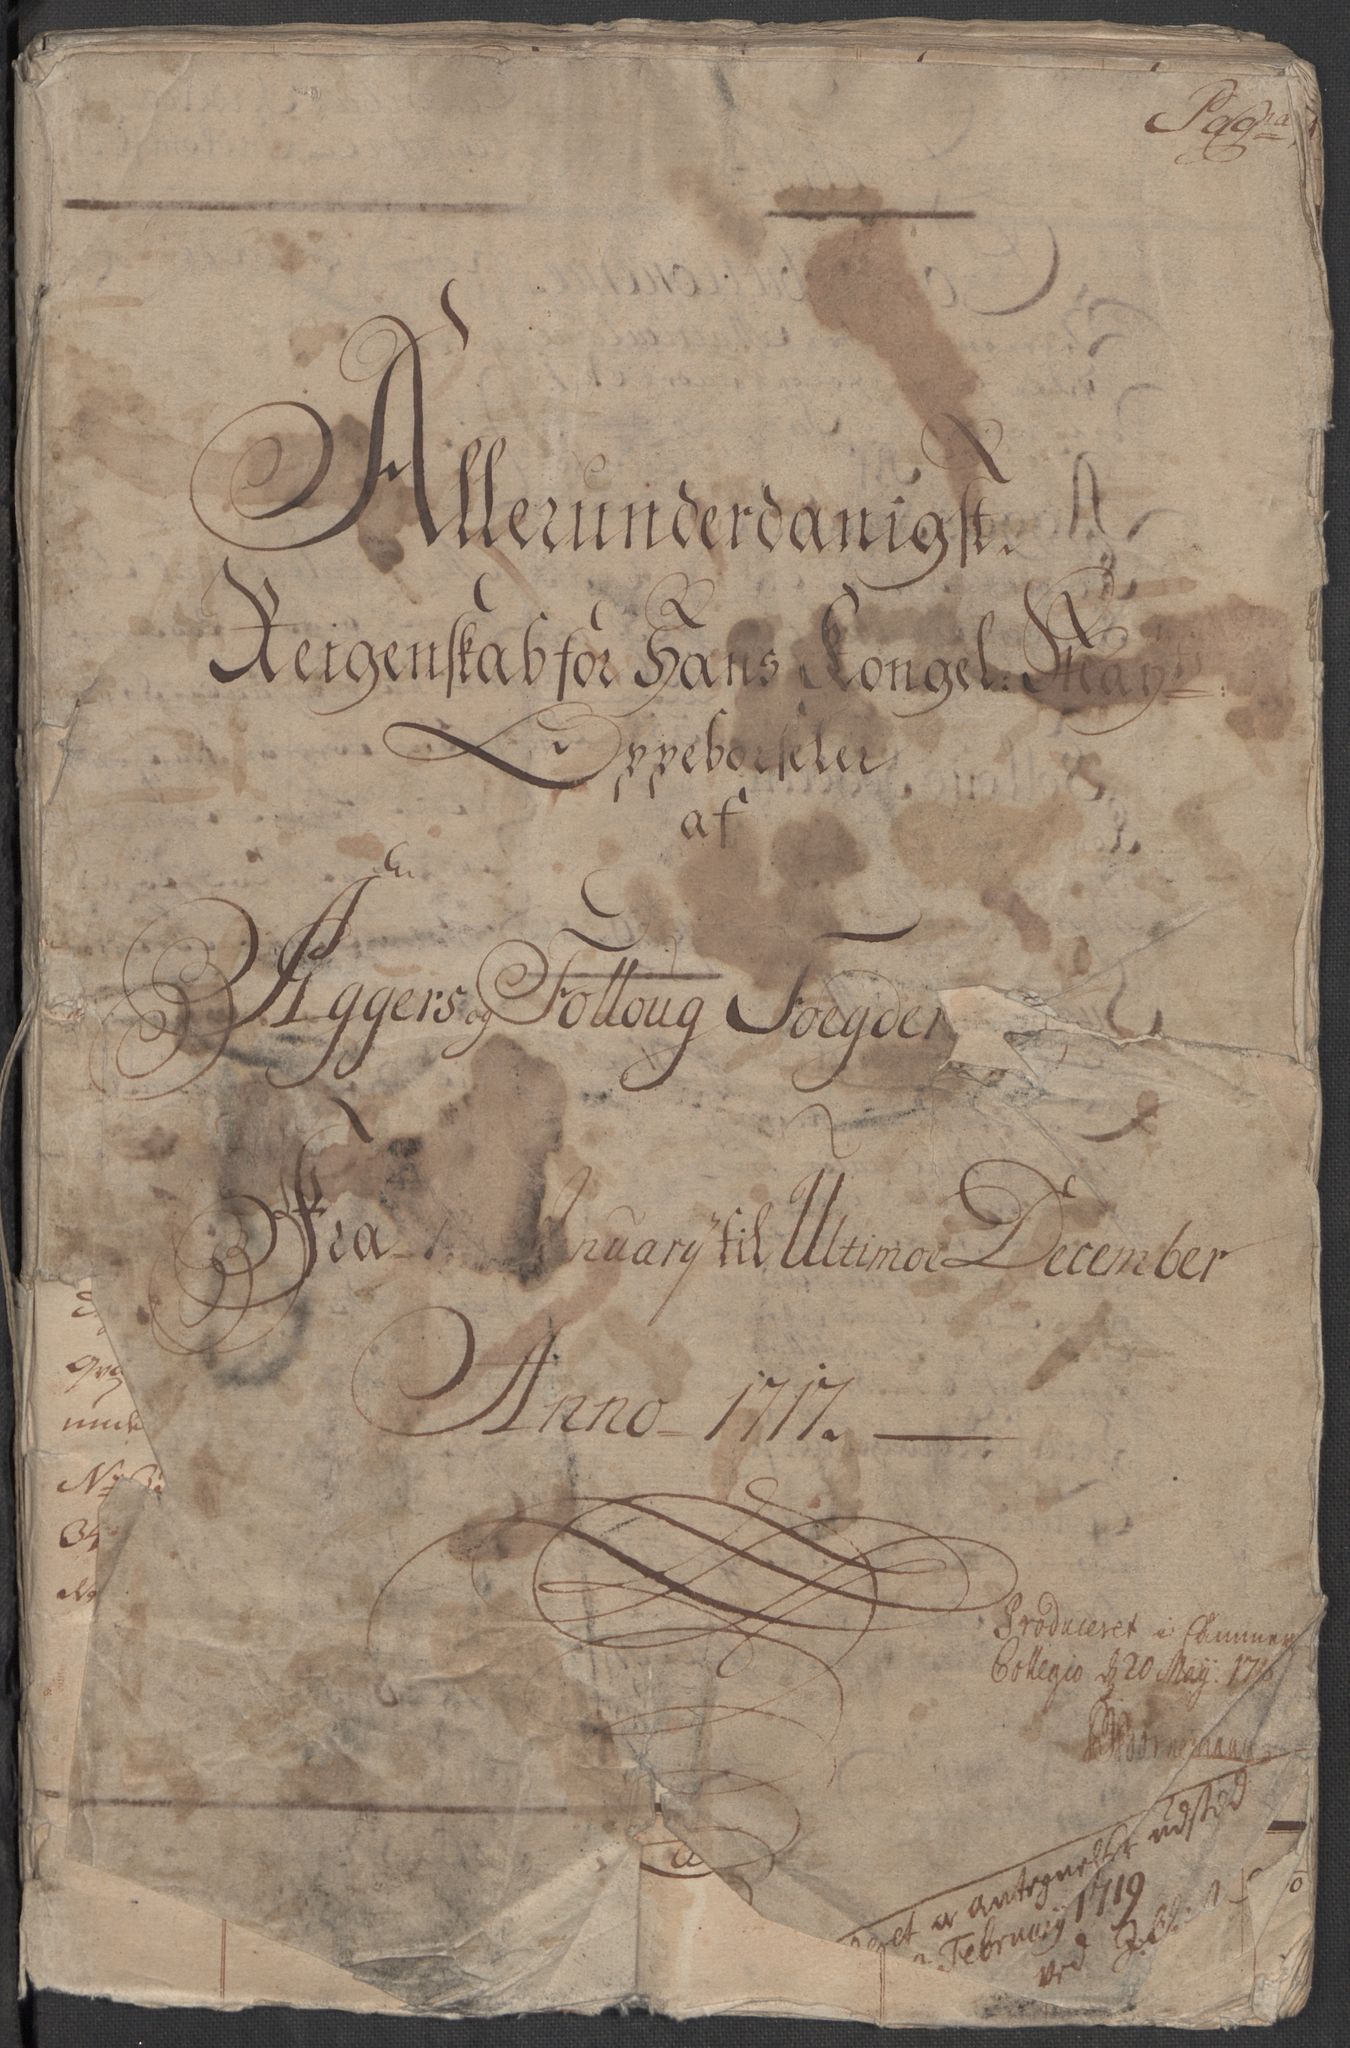 Pag: na
Allerunderdanigst
Reigenskab for Hans Kongel: Mayts:
Oppebørseler
af
Aggers og Folloug Foegder
Fra 1. nuary til Ultimo December
Anno 1717.
Produceret i Cammer
Collegio d 20 May: 171
eret er antegnelse udsted
February 1719
ved